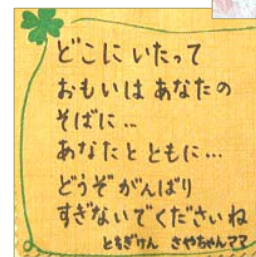 どこにいたって
おもいは あなたの
そばに…
あなたと ともに…
どうぞ がんばり
すぎないでくださいね
とちぎけん さやちゃんママ